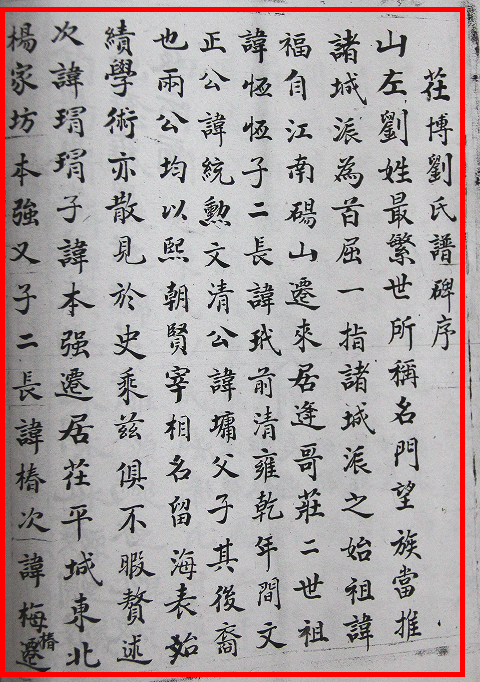 茌博劉氏譜碑序
山左劉姓最繁世所稱名門望族當推
諸城派為首屈一指諸城派之始祖諱
福自江南碭山遷來居逄哥莊二世祖
諱恆恆子二長諱玳前清雍乾年間文
正公諱統勳文清公諱墉父子其後裔
也兩公均以熙朝賢宰相名留海表始
績學術亦散見於史乘茲俱不暇贅述
次諱瑁瑁子諱本强遷居茌平城東北
楊家坊本強又子二長諱椿次諱梅椿遷